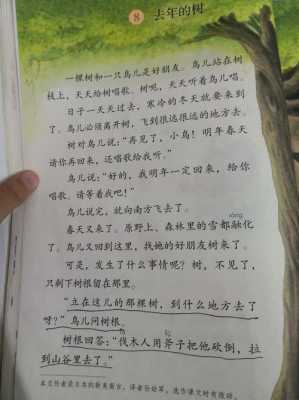 8 去年的树
一棵树和一只鸟儿是好朋友。鸟儿站在树
枝上，天天给树唱歌。树呢，天天听着鸟儿唱。
日子一天天过去，寒冷的冬天就要来到
了。鸟儿必须离开树，飞到很远很远的地方去。
树对鸟儿说：“再见了，小鸟！明年春天
请你再回来，还唱歌给我听。”
鸟儿说：“好的，我明年一定回来，给你
唱歌。请等着我吧！”
鸟儿说完，就向南方飞去了。
春天又来了。原野上、森林里的雪都融化
róng
了。鸟儿又回到这里，找她的好朋友树来了。
可是，发生了什么事情呢？树，不见了，
只剩下树根留在那里。
“立在这儿的那棵树，到什么地方去了
呀？”鸟儿问树根。
树根回答：“伐木人用斧子把他砍倒，拉
到山谷里去了。”
本文作者是日本的新美南吉，译者孙幼军，选作课文时有改动。